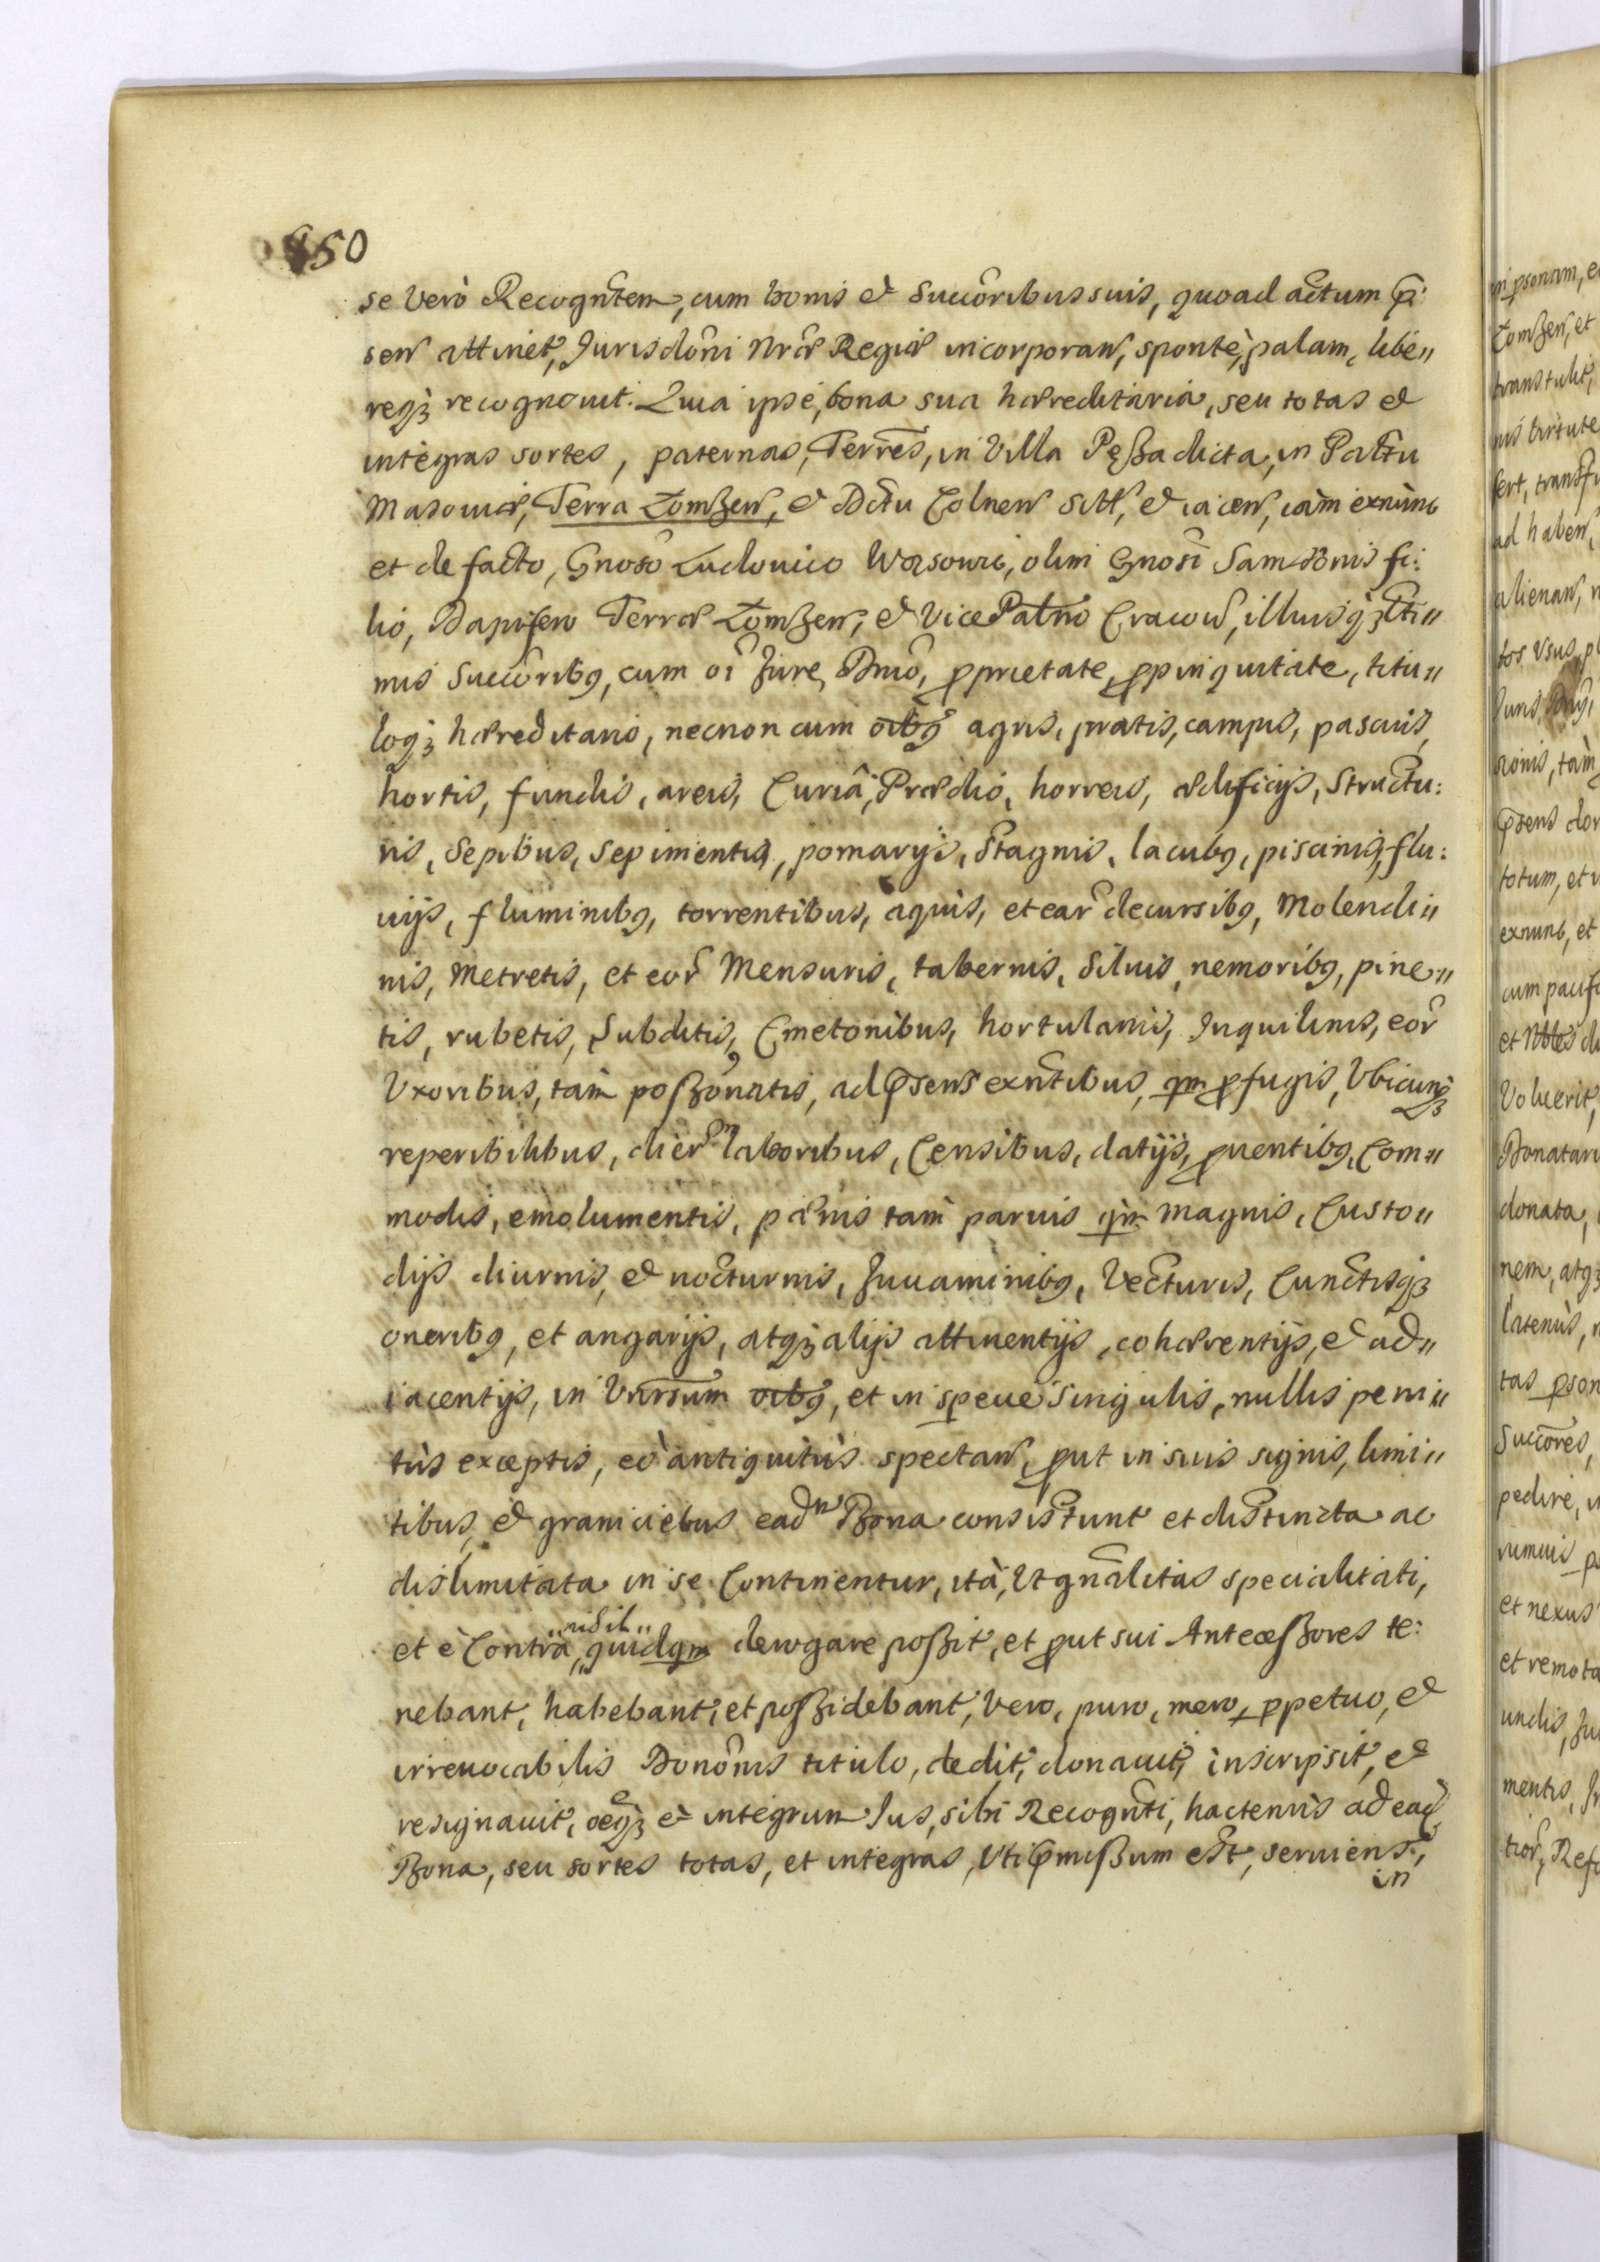 450
se verò Recogntem, cum bonis et Succoribus suis, quoad actum præ:
sen attinet, Jurisdoni Nræ Regiæ incorporan, spontè, palam, libe„
reqz recognovit. Quia ipse, bona sua hæreditaria, seu totas et
integras sortes, paternas, Terres, in Villa Pęßa dicta, in Palttu
Masoviæ, Terra Łomżen, et Dictu Colnen sitt, et iacen, iàm exnùnc
et de facto, Gnoso Ludovico Wąsowic, olim Gnosi Samsonis fi:
lio, Dapifero Terræ Łomżen, et Vice Palno Cracovi, illiusqz ltti„
mis Succoribq, cum oi Jure, Dnio, proprietate, propinquitate, titu„
loqz hæreditario, necnon cum oibq agris, pratis, campis, pascuis,
hortis, fundis, areis, Curiâ, Prædio, horreis, ædificijs, Structu:
ris, Sepibus, Sepimentis, pomarijs, Stagnis, lacubq, piscinis, flu:
uijs, fluminibq, torrentibus, aquis, et ear decursibq, Molendi„
nis, Metretis, et eor Mensuris, tabernis, Siluis, nemoribq, pine„
tis, rubetis, Subditis, Cmetonibus, hortulanis, Inquilinis, eor
Uxoribus, tàm poßonatis, ad præsens exntibus, qm profugis, Ubicunqz
reperibilibus, dier laboribus, Censibus, datijs, prouentibq, Com„
modis, emolumentis, pænis tàm paruis qm magnis, Custo„
dijs diurnis, et nocturnis, Juuaminibq, Vecturis, Cunctisqz
oneribq, et angarijs, atqz alijs attinentijs, cohærentijs, et ad„
iacentijs, in Unrsum oibq, et in specie Singulis, nullis peni„
tùs exceptis, eò antiquitùs spectan, prout in suis signis, limi„
tibus, et graniciebus ead Bona consistunt et distincta ac
dislimitata in se Continentur, ità, Ut gnalitas specialitati,
et è Contrà „nihil„ quidqm derogare poßit, et prout sui Anteceßores te:
nebant, habebant, et poßidebant, vero, puro, mero, perpetuo, et
irreuocabilis Donônis titulo, dedit, donauit, inscripsit, et
resignauit, oeqz et integrum Jus, sibi Recognti, hactenùs ad ead
Bona, seu sortes totas, et integras, Uti præmißum est, seruiens,
in